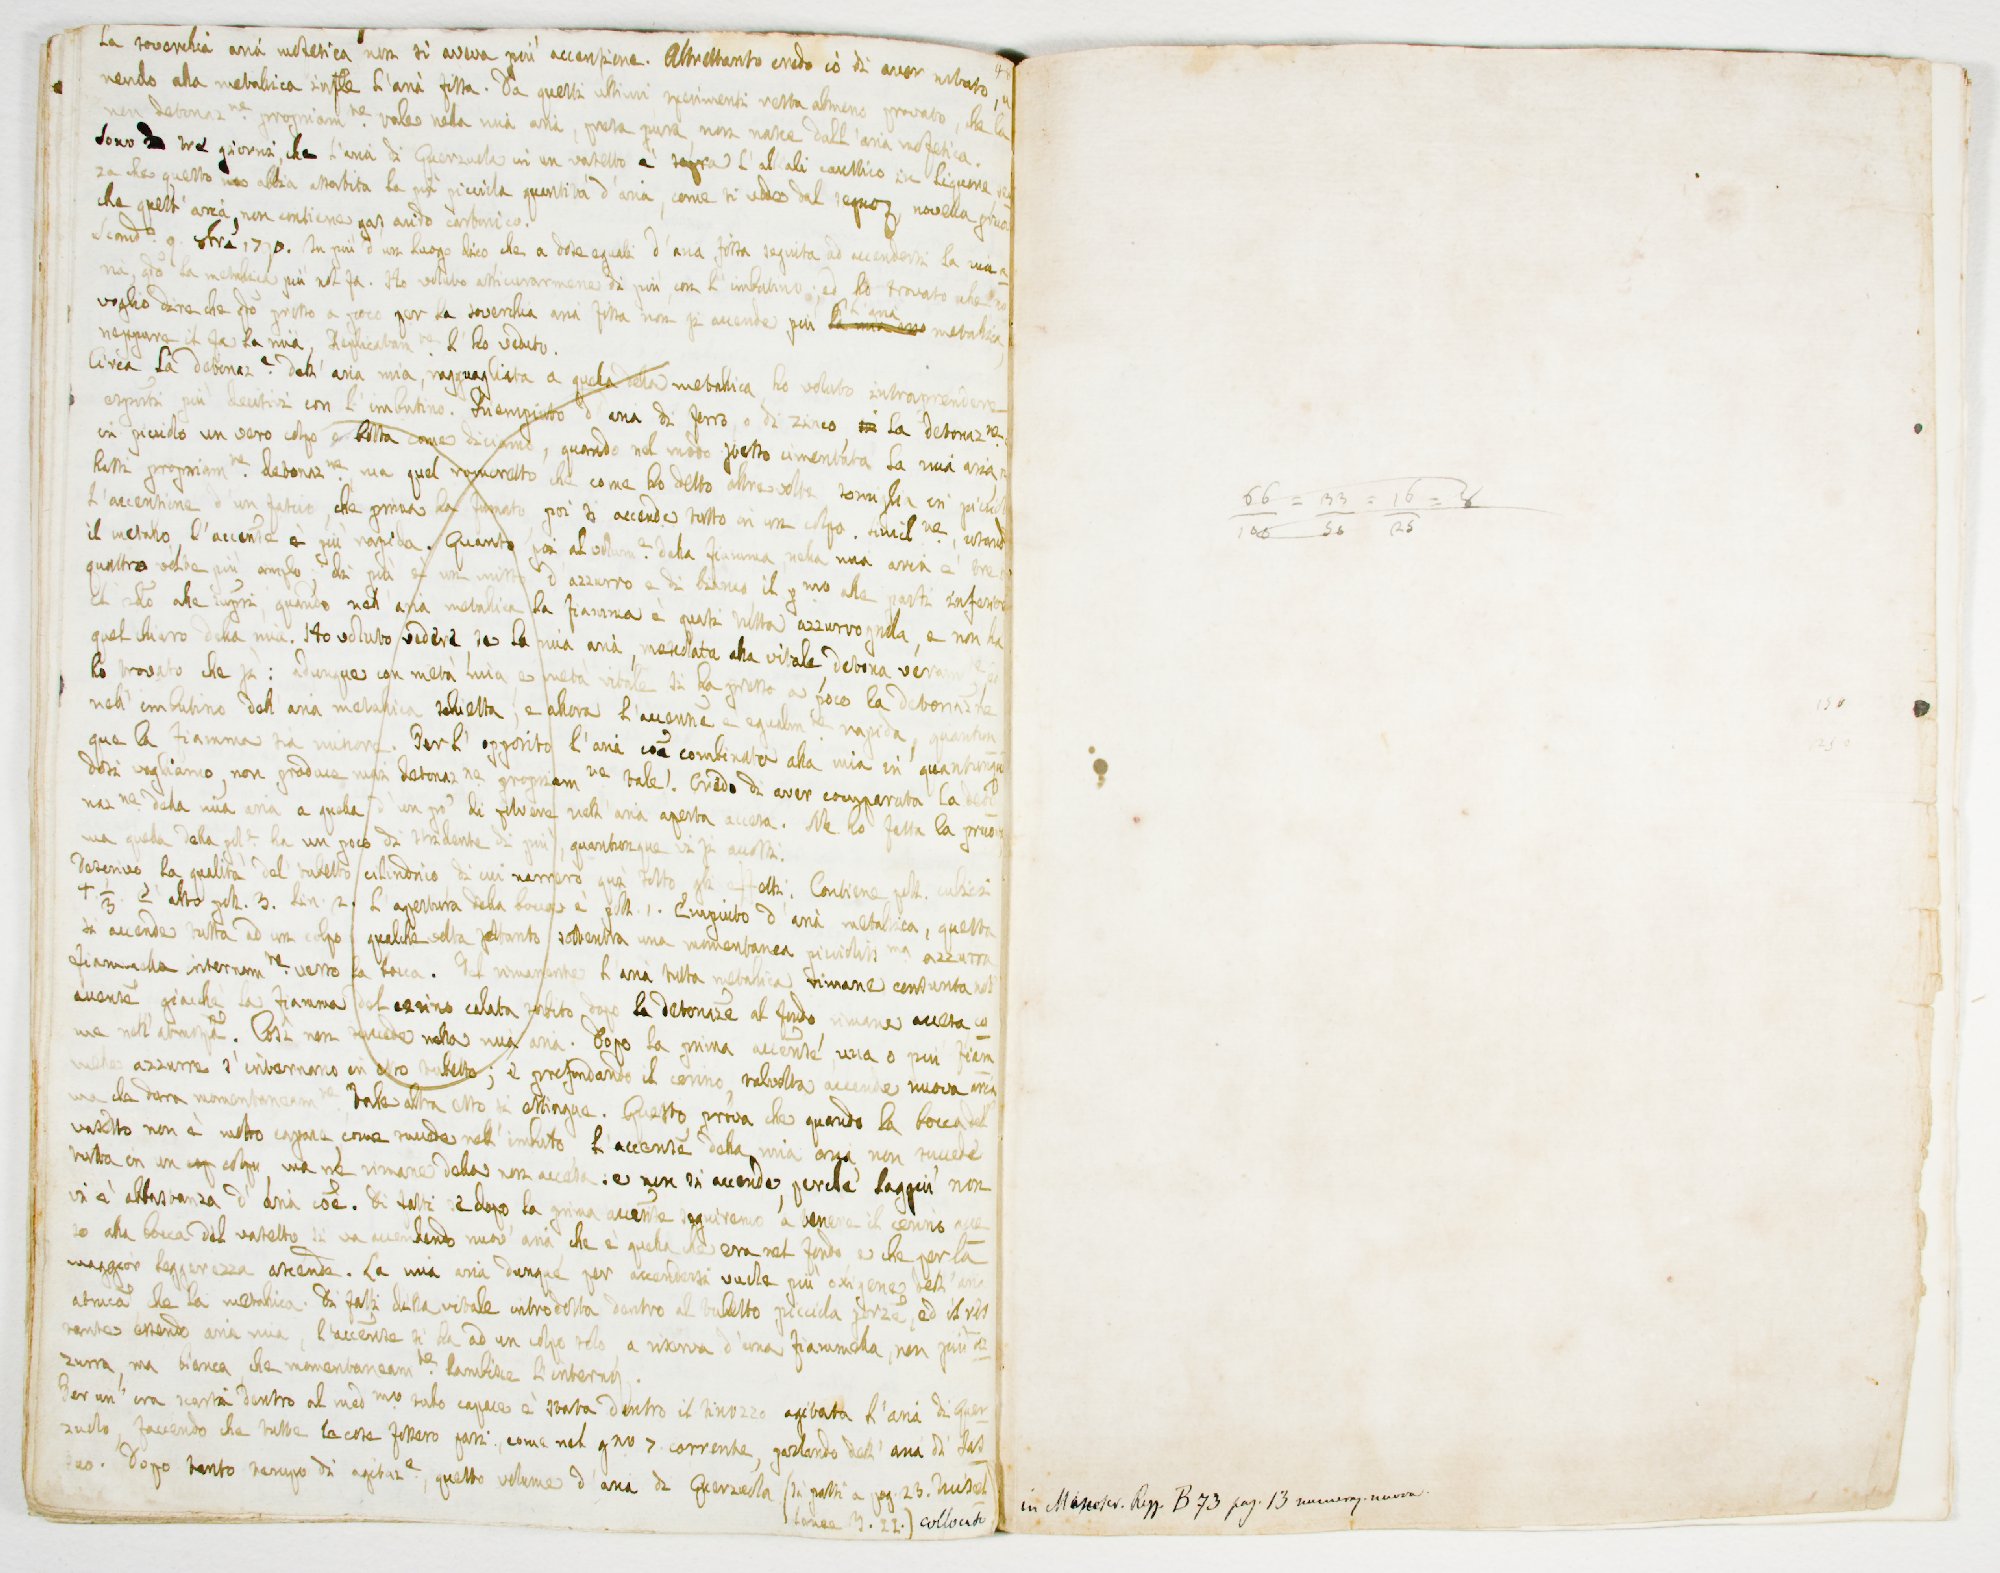 La soverchia aria mofetica non si aveva più accensione. Altrettanto credo ciò di aver notato, u
nendo alla metallica infle l'aria fissa. Da questi ultimi sperimenti resta almeno provato, che la
non detonaz.ne propriam.ne vale nella mia aria, presa pura non nasce dall'aria mofetica.
Sono tre giorni, che l'aria di Querzuola in un vasetto è sopra l'alkali caustico in liquore sen
za che questo abbia assorbita la più picciola quantità d'aria, come si vede dal segno, novella pruova
che quest'aria, non contiene gas acido carbonico.
Scand.o 9. 8bre 1790. In più d'un luogo dico che a dose eguali d'aria fissa seguita ad accendersi la mia a
ria, qdo la metallica più nol fa. Ho voluto assicurarmene di più con l'imbutino; ed ho trovato che no
voglio dire che qdo presso a poco per la soverchia aria fissa non si accende più l'aria metallica,
neppure il fa la mia. Replicatam.te l'ho veduto.
Circa la detonaz.e dell'aria mia, ragguagliata a quella della metallica, ho voluto intraprendere
esperti più decisivi con l'imbutino. Riempiuto d'aria di ferro, o di zinco, la detonaz.ne
in picciolo un vero colpo e botta come diciamo, quando nel modo stesso cimentata la mia aria, n
hassi propriam.te detonaz.ne, ma quel romoretto che come ho detto altre volte somiglia in picciol
l'accensione d'un fascio, che prima ha fumato, poi si accende tutto in un colpo. Simil.ne, usand
il metallo, l'accense è più rapida. Quanto poi al volum.e della fiamma, nella mia aria è tre o
quattro volte più amplo, di più è un misto d'azzurro e di bianco il p.mo alle parti inferiori
el 2do alle supri, quando nell'aria metallica la fiamma è quasi tutta azzurrognola, e non ha
quel chiaro della mia. Ho voluto vedere se la mia aria, mescolata alla vitale, detona veram.te ed
ho trovato che sì: adunque con metà mia e metà vitale si ha presso a poco la detonazne
nell'imbutino dell'aria metallica schietta; e allora l'accense è egualm.te rapida, quantun
que la fiamma sia minore. Per l'opposito l'aria coe combinata alla mia in quantunque
dosi vogliamo, non produce mai detonaz.ne propriam.ne tale. Credo di aver comparata la deto
naz.ne della mia aria a quella d'un pò di polvere nell'aria aperta accesa. Ne ho fatta la pruova,
ma quella della pol.e ha un poco di stridente di più, quantunque vi si accosti.
Descrivo la qualità del tubetto cilindrico di cui narrerò qui sotto gli effetti. Contiene poll. cubici
+ 1/3. È alto poll. 3. lin. 2. L'apertura della bocca è poll. 1. Empiuto d'aria metallica, questa
si accende tutta ad un colpo: qualche volta soltanto sottentra una momentanea picciolis.ma azzurra
fiammella internam.te verso la bocca. Del rimanente l'aria tutta metallica rimane consunta nell'
accense giacchè la fiamma del cerino calata subito dopo la detonaze al fondo rimane accesa co
me nell'atmosfa. Così non succede nella mia aria. Dopo la prima accense, una o più fiam
melle azzurre s'internano in esso tubetto; e profundando il cerino talvolta accende nuova aria
ma che dura momentaneam.te, tale altra esso si estingue. Questo prova che quando la bocca del
vasetto non è molto capace come succede nell'imbuto l'accense della mia aria non succede
tutta in un colpo ma ne rimane della non accesa: e non si accende, perchè laggiù non
vi è abbastanza d'aria coe. Di fatti se dopo la prima accense seguiremo a tenere il cerino acce
so alla bocca del vasetto si va accendendo nuov'aria che è quella che era nel fondo e che per la
maggior leggerezza ascende. La mia aria dunque per accendersi vuole più oxigene dell'aria
atmica che la metallica. Di fatti della vitale introdotta dentro al tubetto picciola porze, ed il res
tante essendo aria mia, l'accense si ha ad un colpo solo, a riserva d'una fiammella, non più az
zurra, ma bianca, che momentaneam.te lambisce l'interno.
Per un'ora scarsa dentro al med.mo tubo capace è stata dentro il tinozzo agitata l'aria di Quer
zuola, facendo che tutte le cose fossero pari, come nel gno 7. corrente, parlando dell'aria di Sas
suo. Dopo tanto tempo di agitaz.e, questo volume d'aria di Querzuola (si passi a pag. 23. Miscel
lanee N. 22.) collocato
66/100 = 33/50 = 16/25 = 8
150
1250
in Manoscr. Regg. B 73 pag. 13 numeraz. nuova.